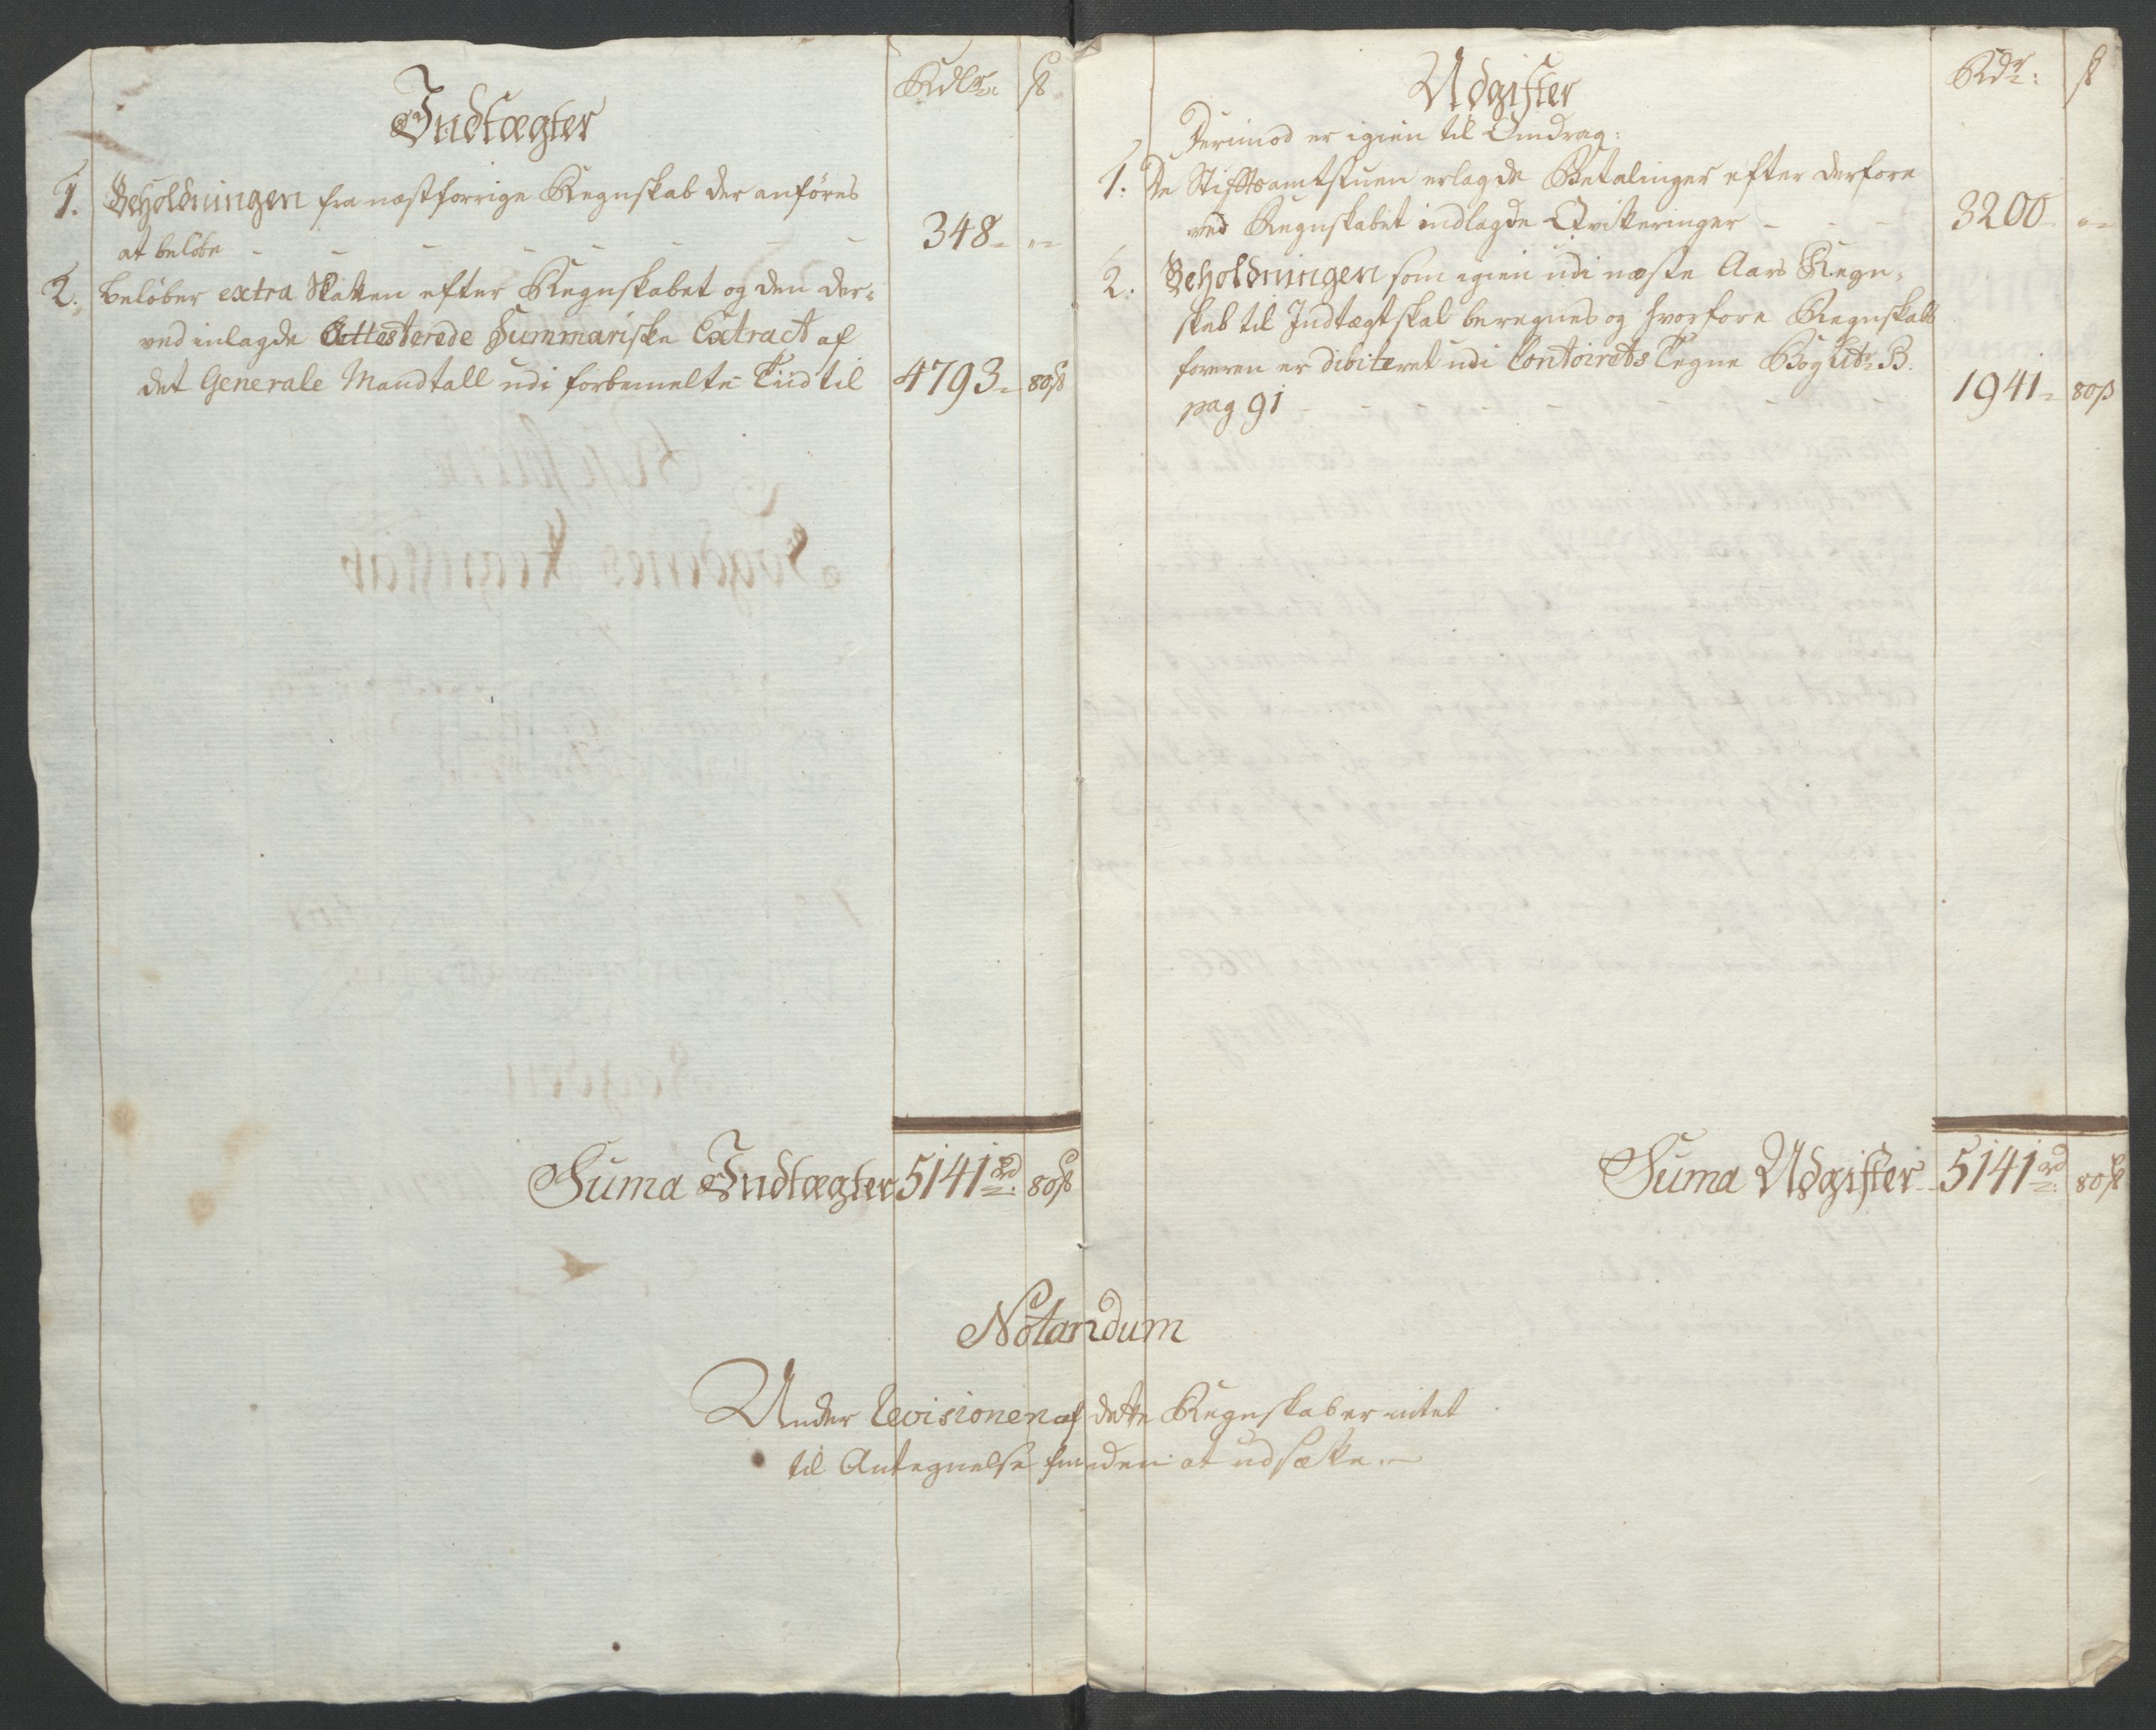 Indtægter
Rdlr: ß
1. Beholdningen fra næstforrige Regnskab der anføres
at beløbe - - - - - - - 348 „ „
2. beløber extra Skatten efter Regnskabet og den der-
ved inlagde Attesterede Summariske Extract af
det Generale Mandtall udi forbemelte Tiid til 4793 „ 80ß
Suma Indtægter 5141rd 80ß
Udgifter
Rdr: ß
Derimod er igien til Omdrag:
1. De Stiftsamtstuen erlagde Betalinger efter derfore
ved Regnskabet indlagde Qvitteringer - - - 3200 „ „
2. Beholdningen som igien udi næste Aars Regn-
skab til Indtægt skal beregnes og hvorfore Regnskabs
foreren er dibiteret udi Contoirets Tegne Bog Litr B.
pag 91 - - - - - - - 1941 „ 80ß
Suma Udgifter 5141rd 80ß
Notandum
Under Revisionen af dette Regnskab er intet
til Antegnelse funden at udsætte.